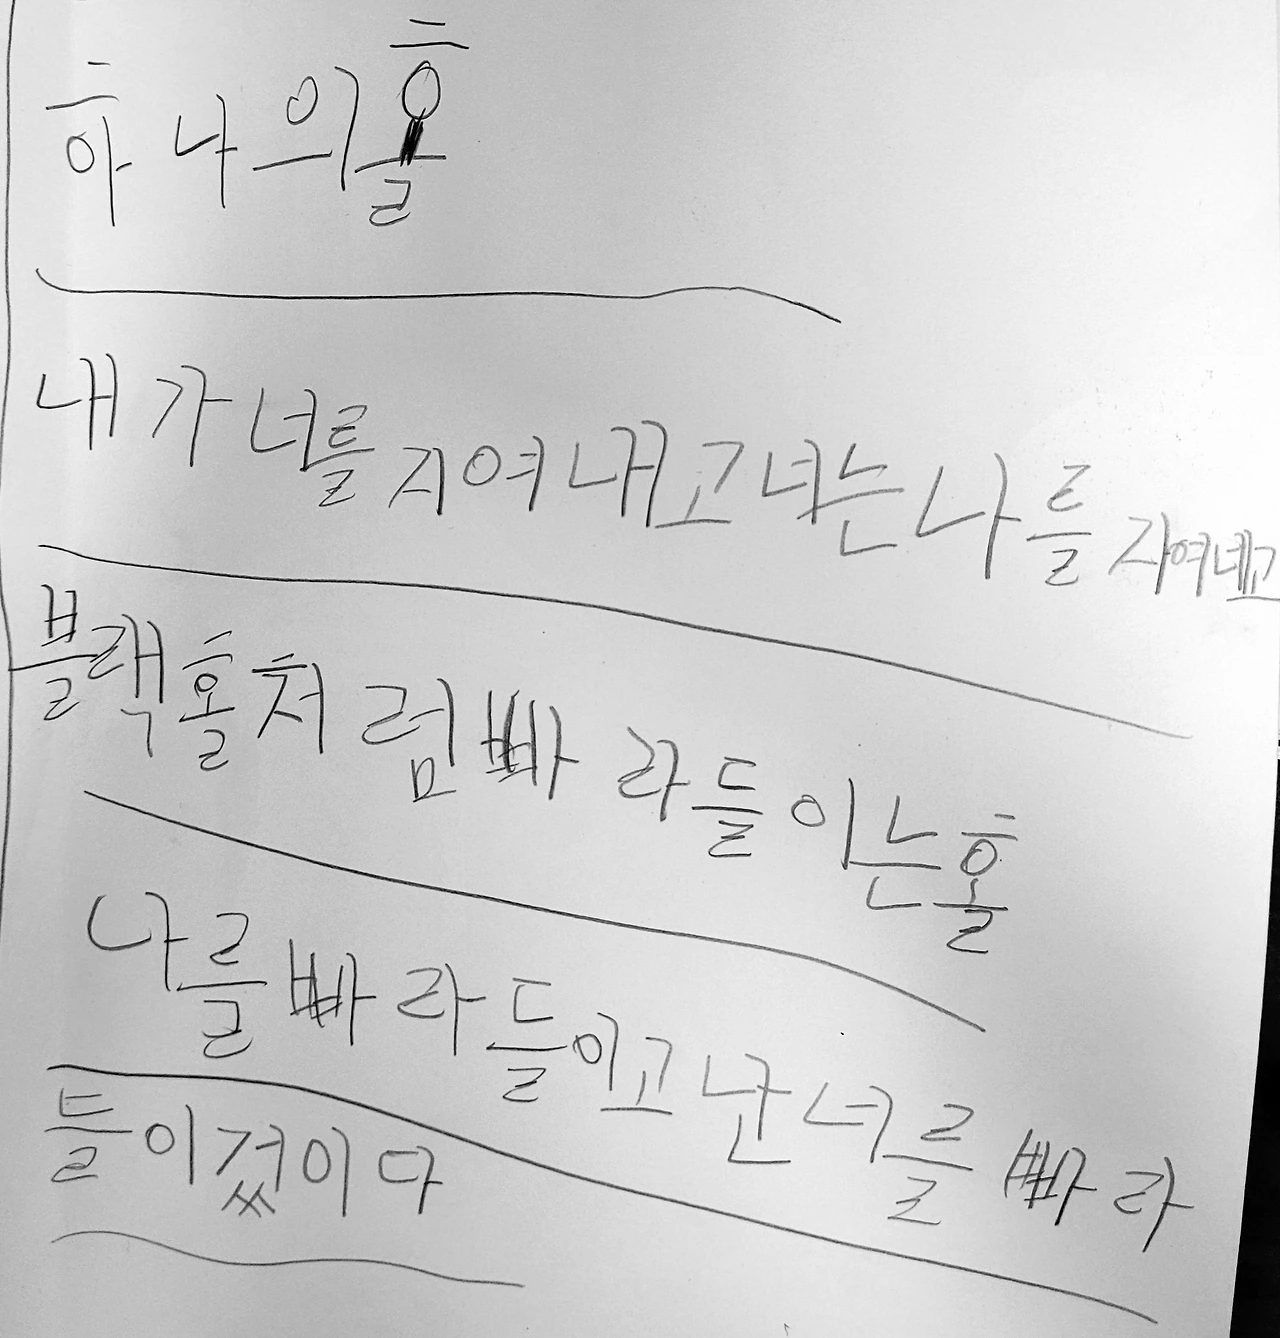 하나의홀
내가너를지여내고너는나를지여네고
블랙홀처럼빠라들이는홀
나를빠라들이고난너를빠라
들이겄이다